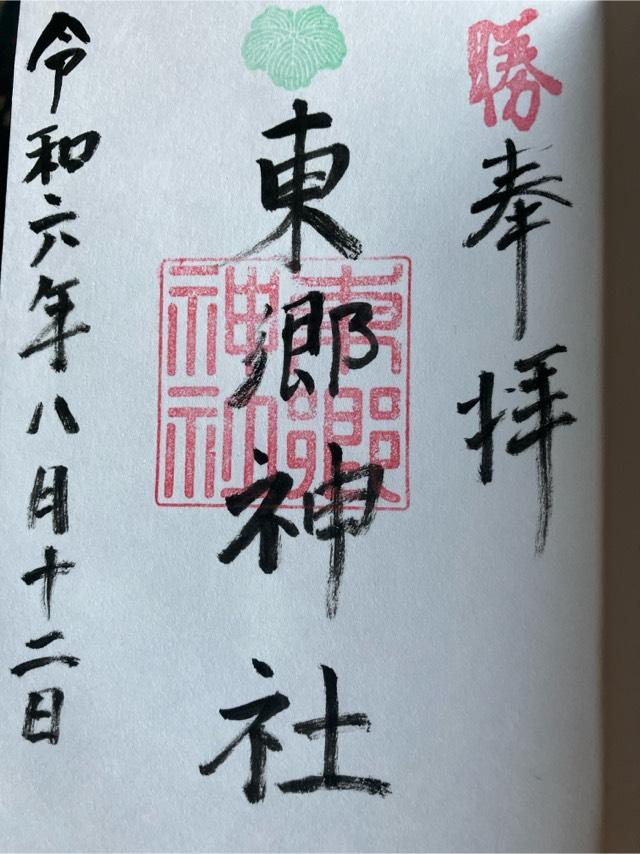 勝
奉拝
東郷神社
東郷神社
令和六年八月十二日